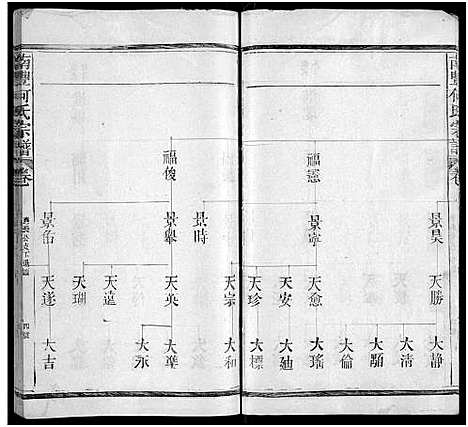 南豐何氏宗譜 卷
福憲
景昊
景寧
景時
天勝
天愈
天安
天珍
天宗
大静
大清
大顯
大倫
大瑤
大廸
大標
大和
福俊
景舉
景佁
天英
天遠
天瑚
天遂
大準
大永
大吉
南豐何氏宗譜 卷